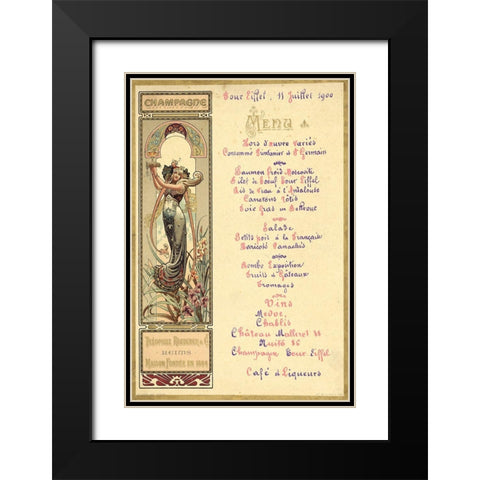 CHAMPAGNE
THÉOPHILE ROEDERER & C°
REIMS
MAISON FONDÉE EN 1864
Tour Eiffel, 11 Juillet 1900
MENU
Hors d'œuvre Variés
Consommé Printanier & St Germain
Saumon Froid Moscovite
Filet de Bœuf Tour Eiffel
Ris de Veau à l'Andalouse
Canetons Rôtis
Foie Gras en Bellevue
Salade
Petits pois à la Française
Haricots Panachés
Bombe Exposition
Fruits & Gâteaux
Fromages
Vins
Medoc,
Chablis
Château Malleret 88
Nuits 86
Champagne Tour Eiffel
Café & Liqueurs